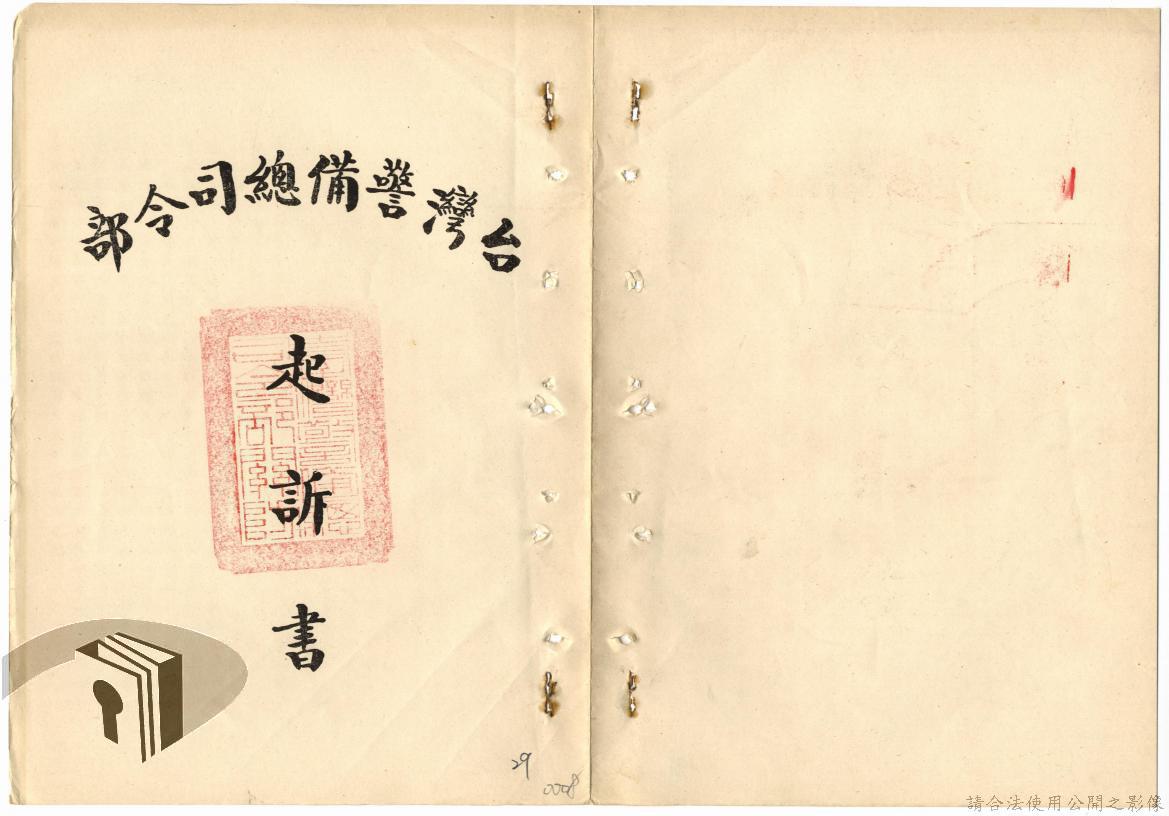 台灣警備總司令部
起訴書
29
0008
請合法使用公開之影像